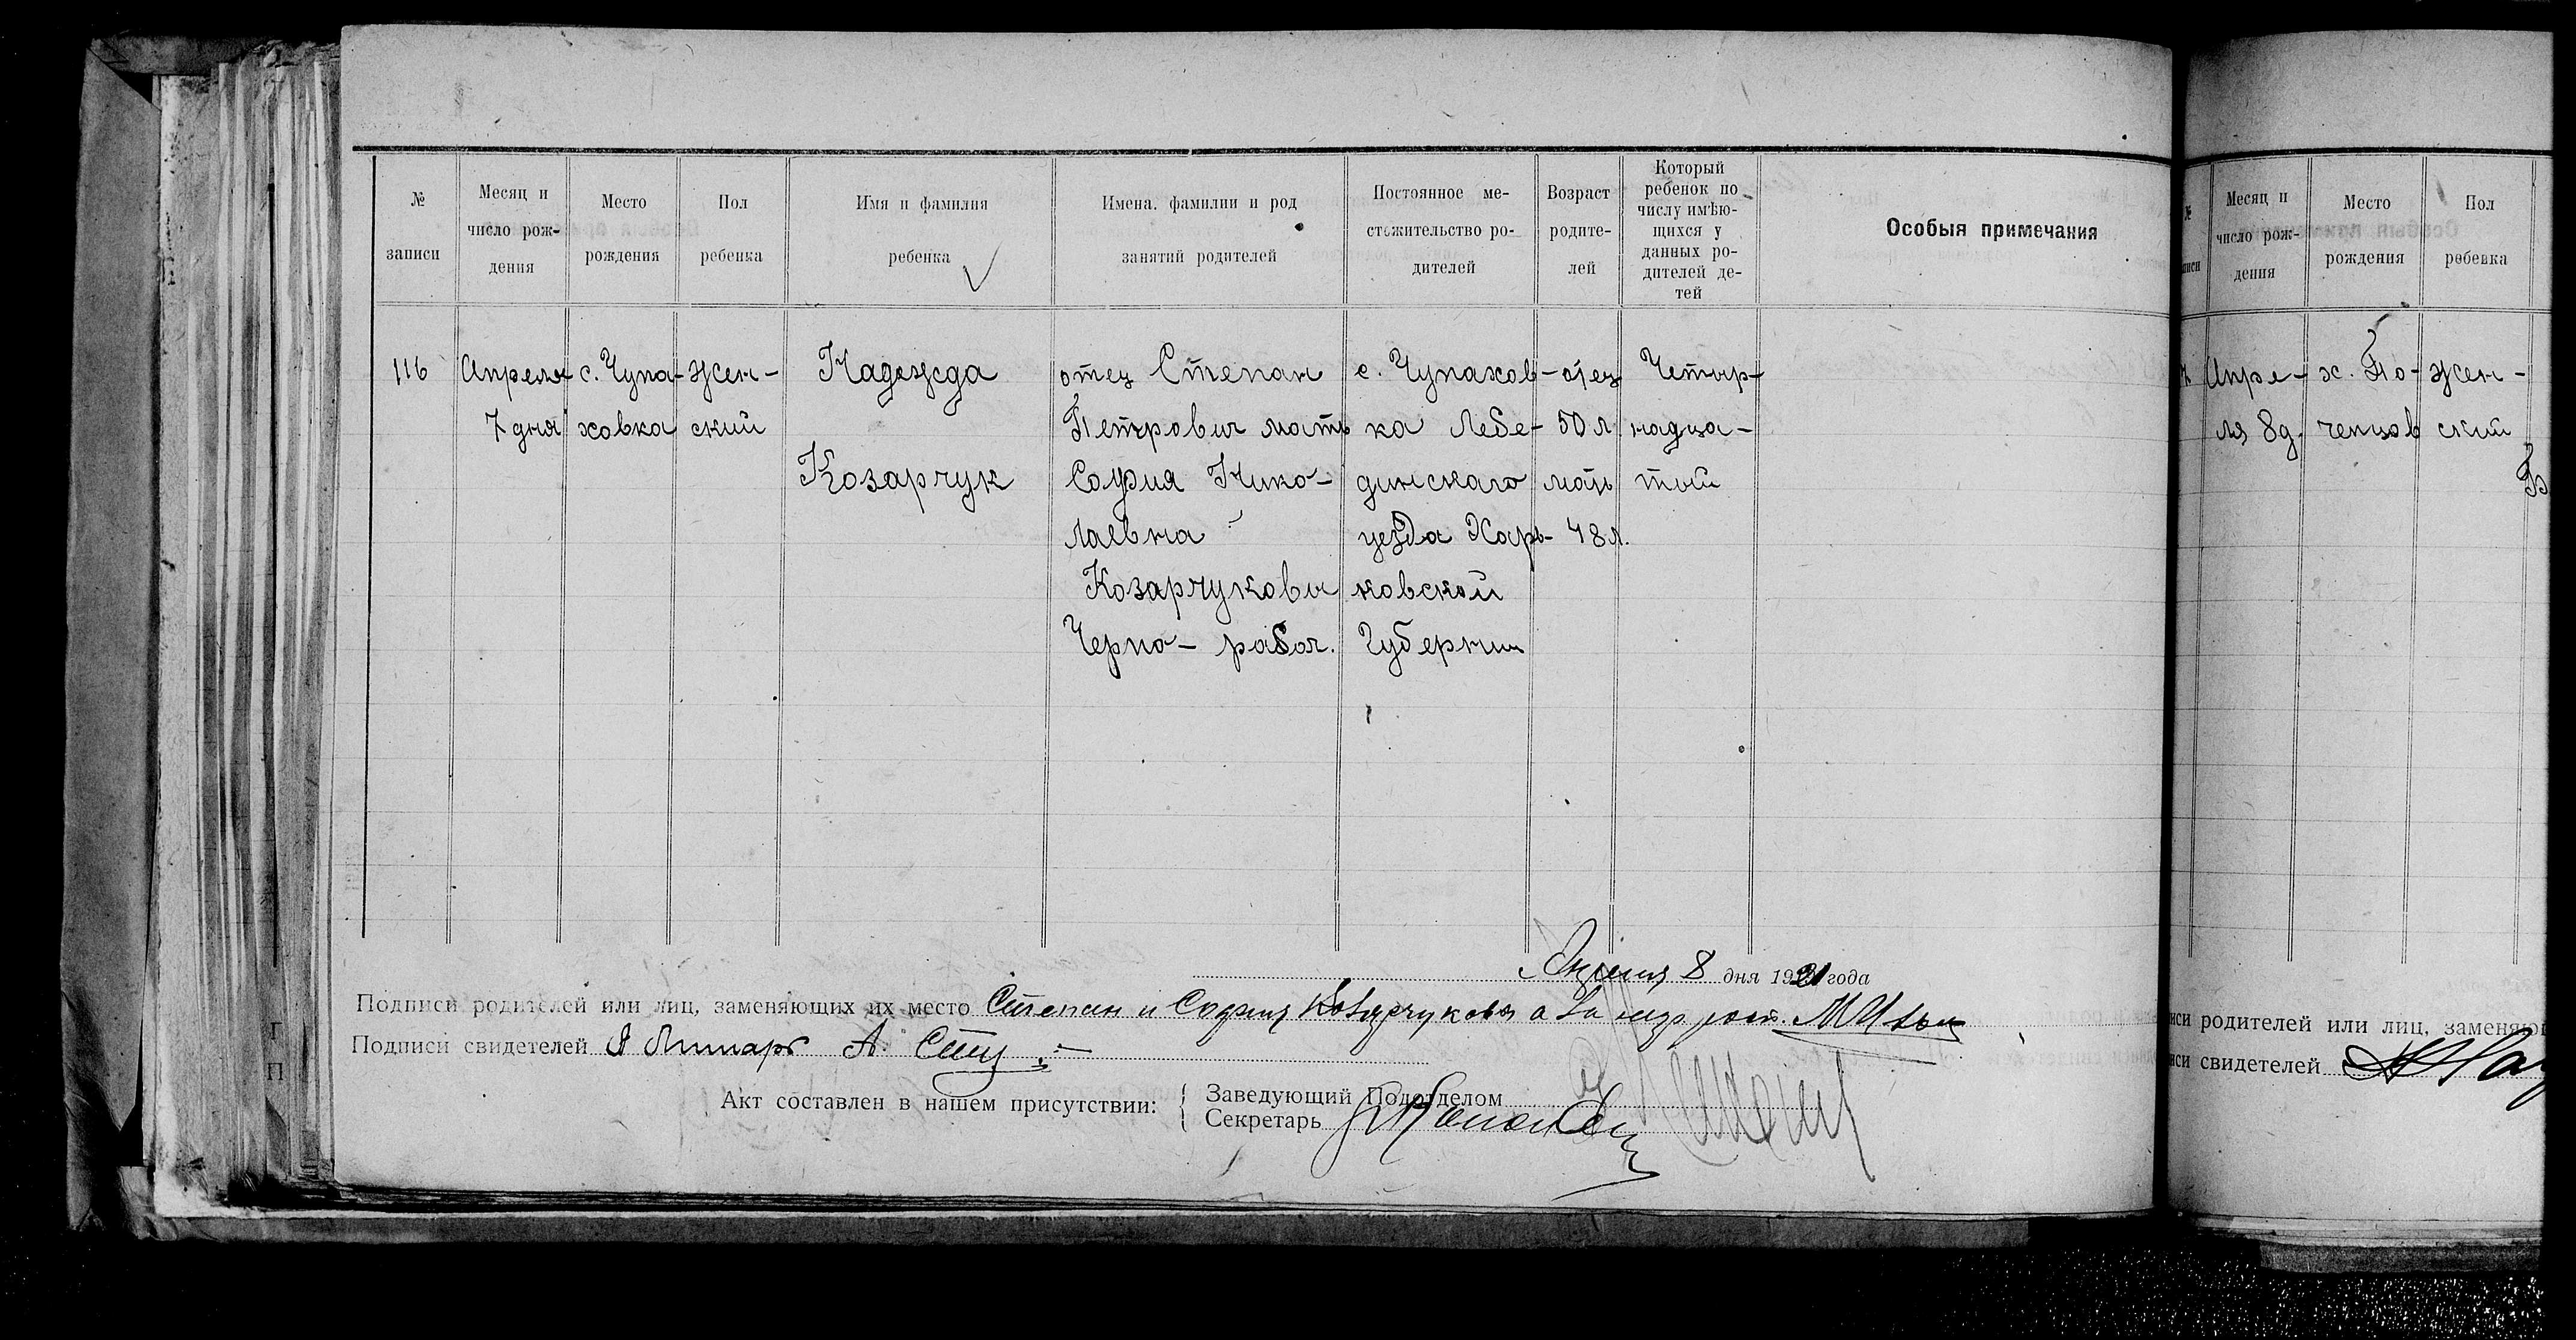 № записи
Месяц и число рождения
Место рождения
Пол ребенка
Имя и фамилия ребенка
Имена, фамилии и род занятий родителей
Постоянное местожительство родителей
Возраст родителей
Который ребенок по числу имѣющихся у данных родителей детей
Особыя примечания
116
Апреля
7 дня
с. Чупа-
ховка
жен-
ский
Надежда
Козарчук
отец Степан
Петрович мать
София Нико-
лаевна
Козарчуковы
Черно-рабоч.
с. Чупахов-
ка Лебе-
динскаго
уезда Харь-
ковской
Губернии
отец
50 л
мать
48 л.
Четыр-
надца-
тый
Апреля 8 дня 1921 года
Подписи родителей или лиц, заменяющих их место Степан и София Козарчуковы а за
Подписи свидетелей
Акт составлен в нашем присутствии:
Заведующий Подотделом
Секретарь
Месяц и число рождения
Место рождения
Пол ребенка
Апре-
ля 8д.
х. По-
чепцов
жен-
ский
родителей или лиц,
свидетелей